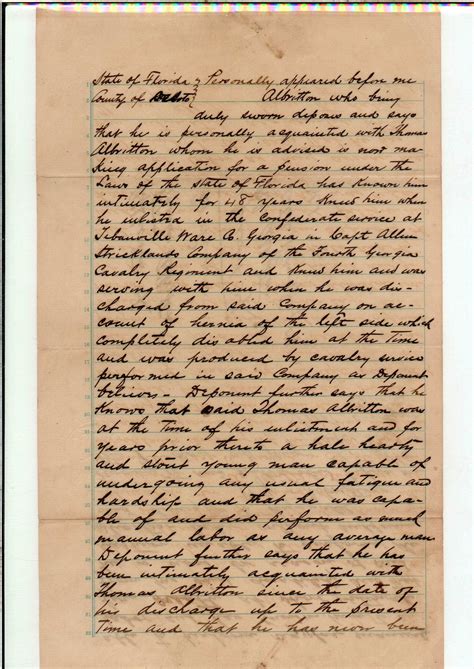 State of Florida } Personally appeared before me
County of DeSoto }      Albritton who being
duly sworn deposes and says
that he is personally acquainted with Thomas
Albritton whom he is advised is now ma-
king application for a pension under the
Laws of the State of Florida has known him
intimately for 48 years Knew him when
he inlisted in the Confederate service at
Tebauville Ware Co. Georgia in Capt Allen
Stricklands Company of the Fourth Georgia
Cavalry Regiment and Knew him and was
serving with him when he was dis-
charged from said Company on ac-
count of hernia of the left side which
completely disabled him at the time
and was produced by cavalry service
performed in said Company as Deponent
believes - Deponent further says that he
Knows that said Thomas Albritton was
at the time of his inlistment and for
years prior thereto a hale hearty
and stout young man capable of
undergoing any usual fatigue and
hardship and that he was capa-
ble of and did perform as much
manual labor as any average man
Deponent further says that he has
been intimately acquainted with
Thomas Albritton since the date of
his discharge up to the present
time and that he has never been